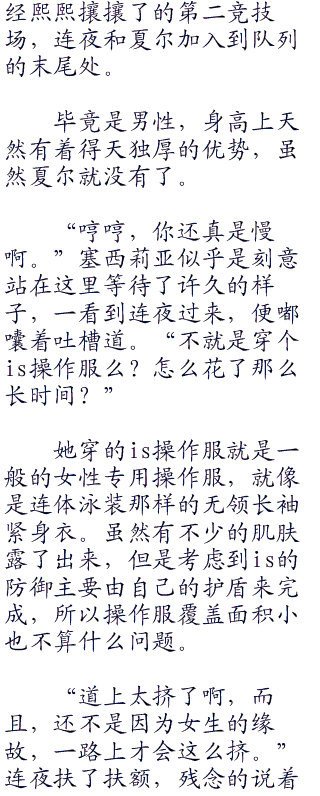 经熙熙攘攘了的第二竞技
场，连夜和夏尔加入到队列
的末尾处。
毕竟是男性，身高上天
然有着得天独厚的优势，虽
然夏尔就没有了。
“哼哼，你还真是慢
啊。”塞西莉亚似乎是刻意
站在这里等待了许久的样
子，一看到连夜过来，便嘟
囔着吐槽道。“不就是穿个
is操作服么？怎么花了那么
长时间？”
她穿的is操作服就是一
般的女性专用操作服，就像
是连体泳装那样的无领长袖
紧身衣。虽然有不少的肌肤
露了出来，但是考虑到is的
防御主要由自己的护盾来完
成，所以操作服覆盖面积小
也不算什么问题。
“道上太挤了啊，而
且，还不是因为女生的缘
故，一路上才会这么挤。”
连夜扶了扶额，残念的说着